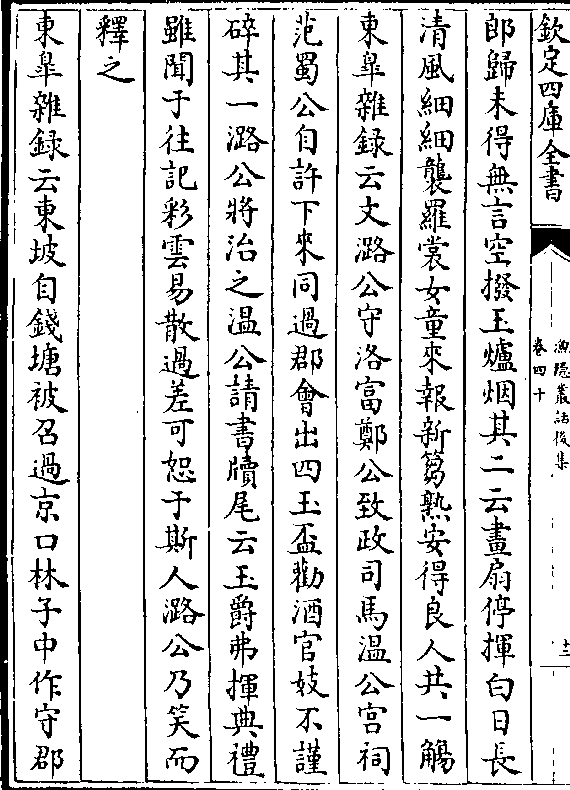 欽定四庫全書
漁隠叢話後集
卷四十
十三
郎歸未得無言空撥玉爐烟其二云畫扇停揮白日長
清風細細襲羅裳女童來報新篘熟安得良人共一觴
東臯雜録云文潞公守洛富鄭公致政司馬溫公宫祠
范蜀公自許下來同過郡會出四玉盃勸酒官妓不謹
碎其一潞公將治之溫公請書牘尾云玉爵弗揮典禮
雖聞于往記彩雲易散過差可恕于斯人潞公乃笑而
釋之
東臯雜録云東坡自錢塘被召過京口林子中作守郡